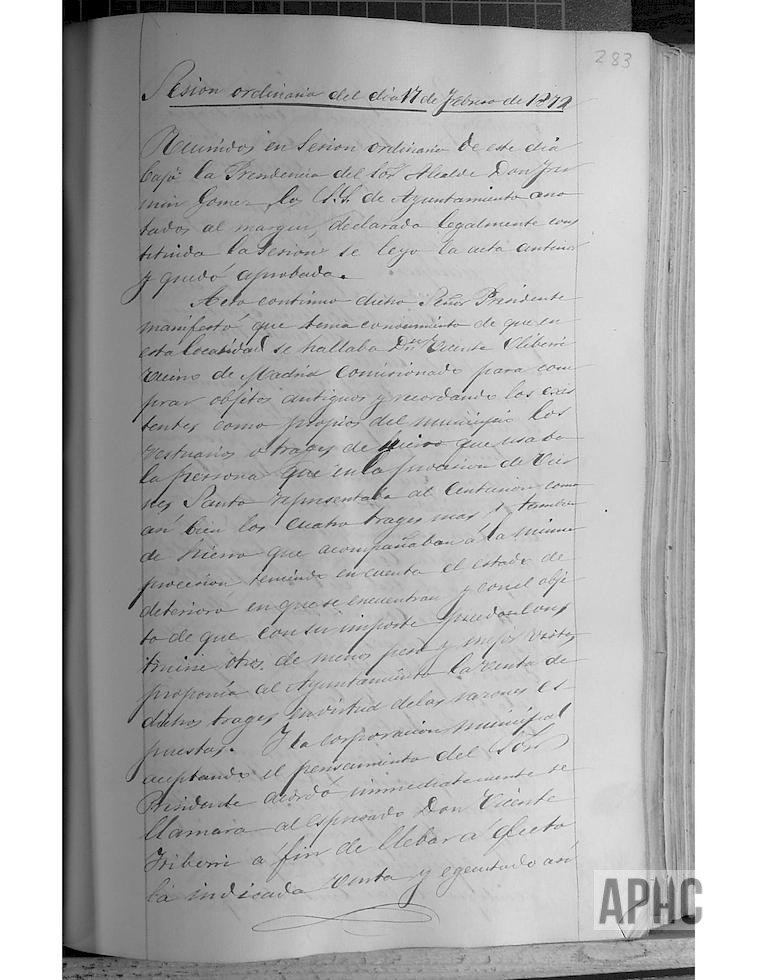 283
Sesion ordinaria del dia 17 de Febrero de 1879
Reunidos en Sesion ordinaria de este dia
bajo la Presidencia del Sor. Alcalde Don Fer
min Gomez, los S.S. de Ayuntamiento ano
tados al margen, declarada legalmente cons
tituida la Sesion se leyo la acta anterior
y quedó aprobada.
Acto continuo dicho Señor Presidente
manifestó que tenia conocimiento de que en
esta localidad se hallaba Dn. Vicente Iliberri
vecino de Madrid comisionado para com
prar objetos antiguos y recordando los exis
tentes como propios del municipio los
vestuarios o trages de hierro que usaba
la persona que en la procesion de Vier
nes Santo representaba al Centurion como
asi bien los cuatro trages mas y tambien
de hierro que acompañaban á la misma
procesion teniendo en cuenta el estado de
deterioro en que se encuentran y con el obje
to de que con su importe puedan cons
truirse otros de menos peso y mejor vista,
proponia al Ayuntamiento la venta de
dichos trages en virtud de las razones es-
puestas. Y la corporacion municipal
aceptando el pensamiento del Sor.
Presidente acordó immediatamente se
llamara al espresado Don Vicente
Iriberri a fin de llebar a efecto
la indicada venta y egecutado asi
APHC